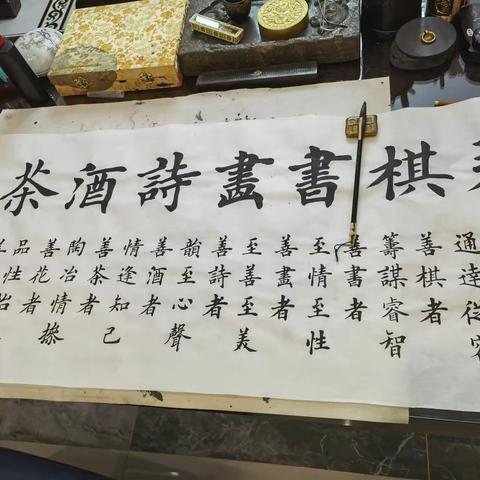 棋書畫詩酒茶
通達從容
善棋者
籌謀睿智
善書者
至情至性
善畫者
至善至美
善詩者
韻至心聲
善酒者
情逢知己
善茶者
陶冶情操
善花者
品性怡